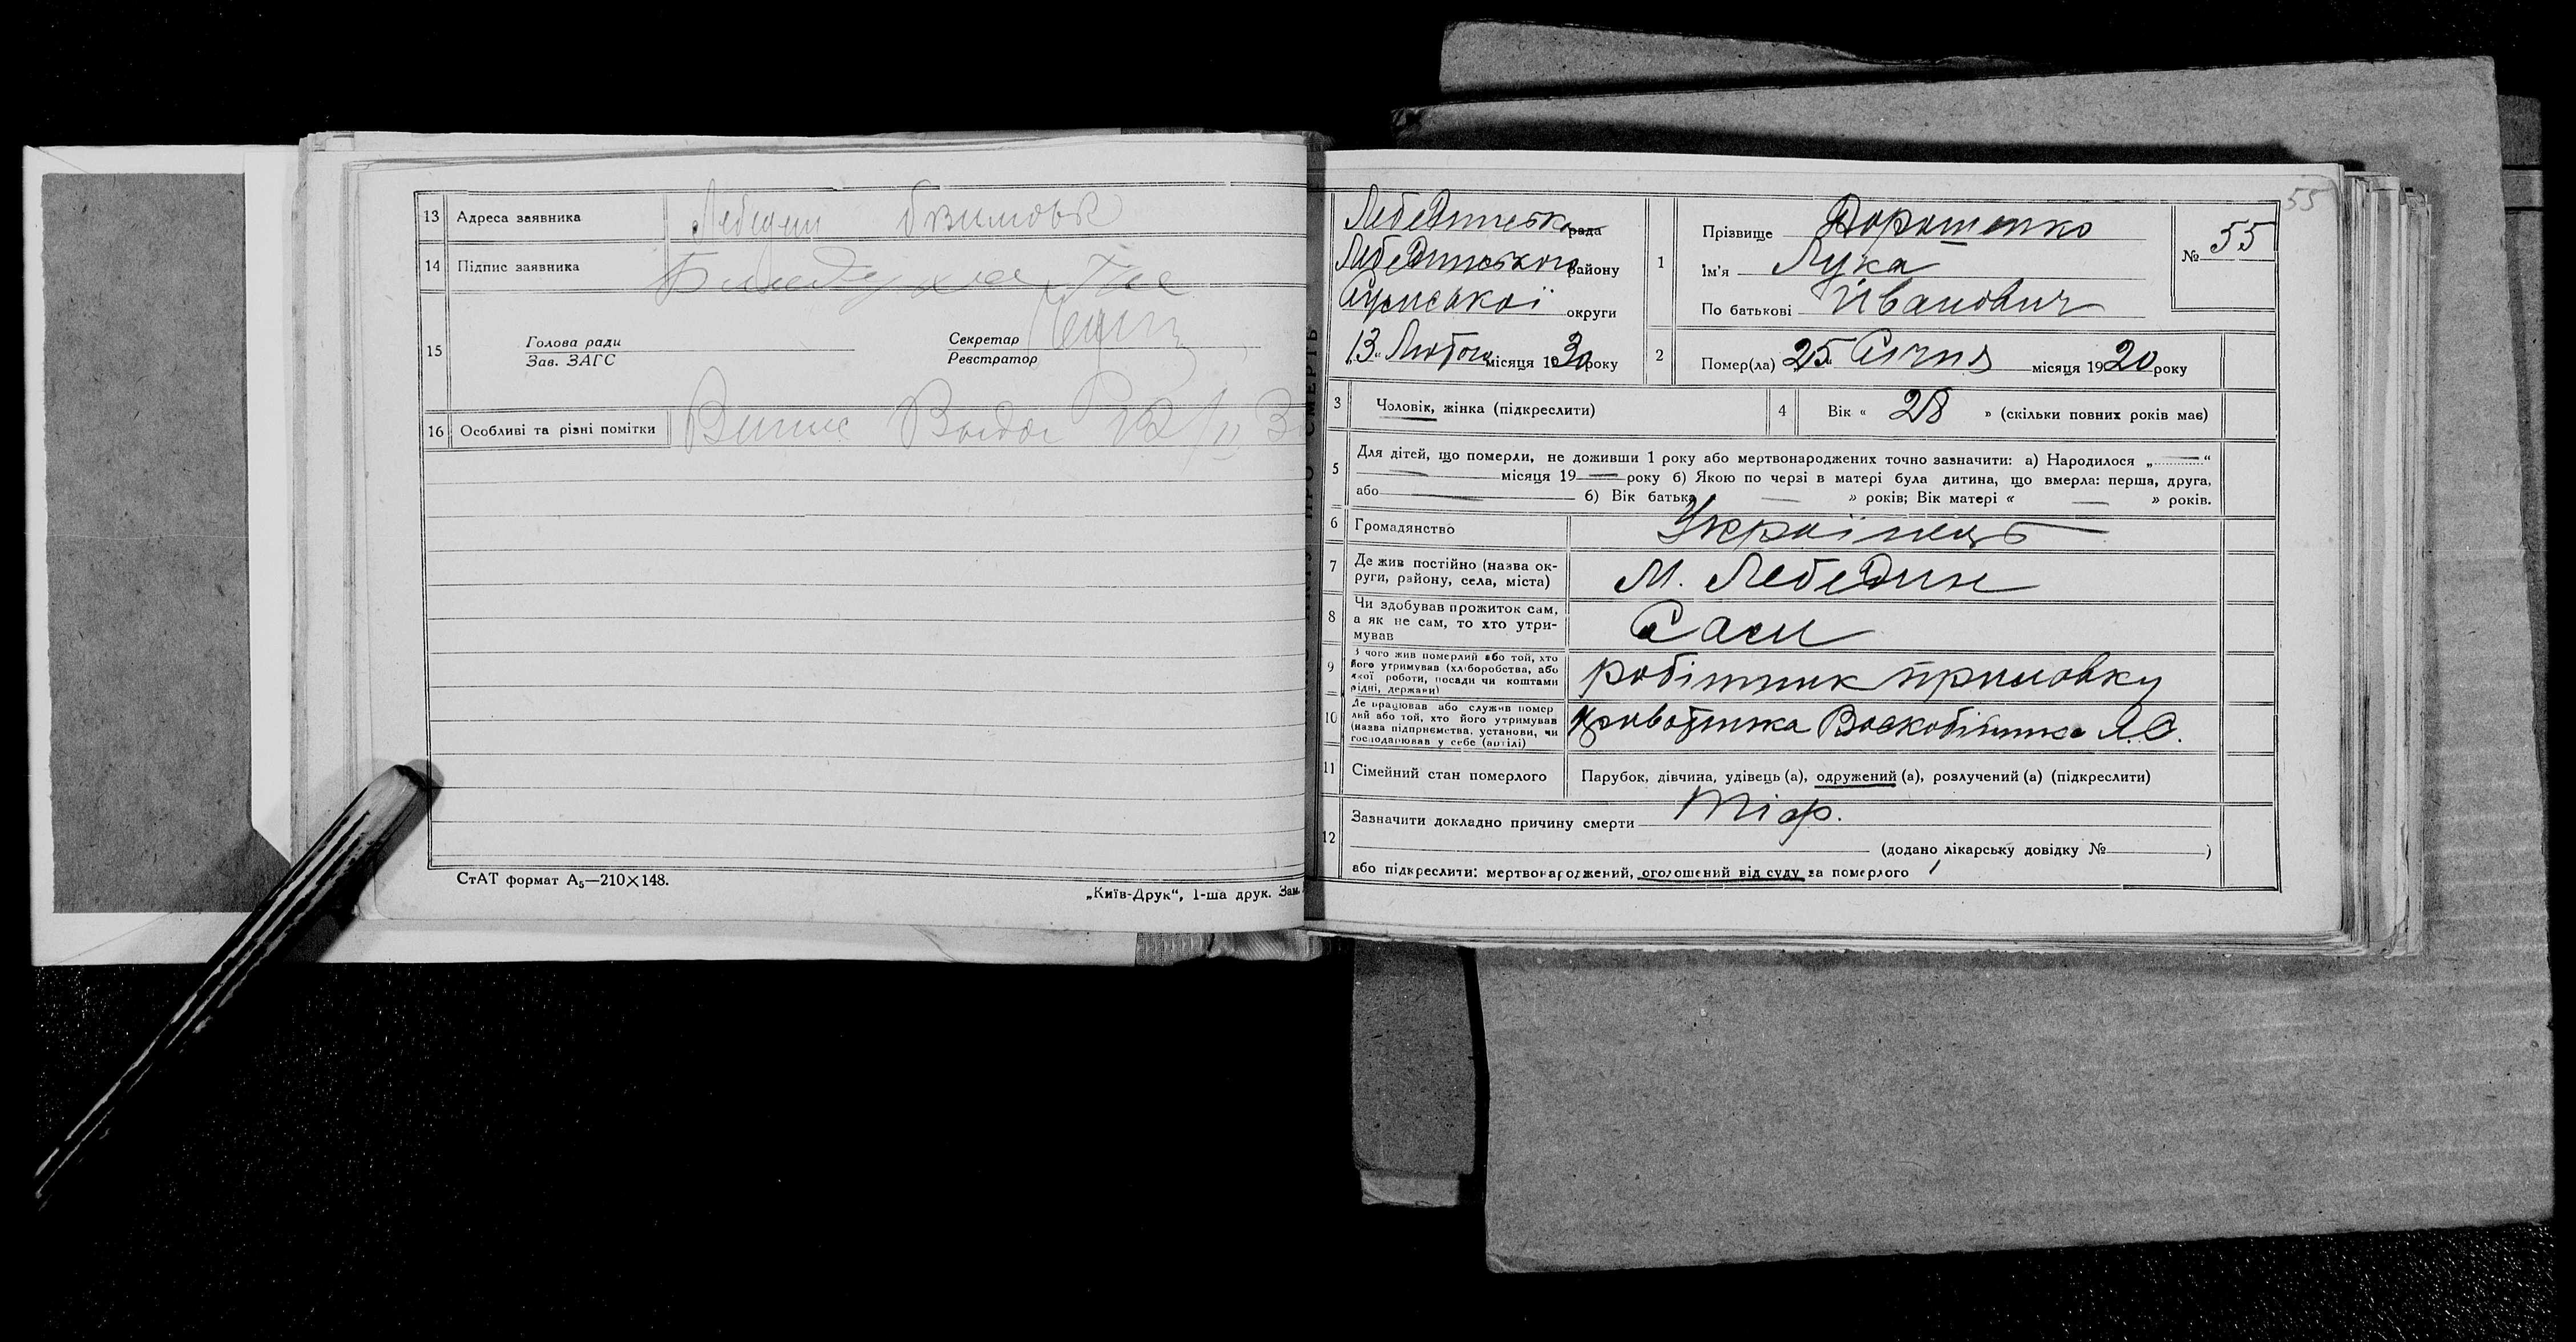 13 Адреса заявника Лебедин
14 Підпис заявника
15 Голова ради
Зав. ЗАГС
Секретар
Реєстратор
16 Особливі та різні помітки Випис
СтАТ формат А₅—210×148.
„Київ-Друк“, 1-ша друк. Зам.
55
Лебединська рада
Лебединського району
Сумської округи
„13“ Лютого місяця 1930 року
1 Прізвище Дорошенко
Ім'я Лука
По батькові Иванович
№ 55
2 Помер(ла) „25“ Січня місяця 1920 року
3 Чоловік, жінка (підкреслити)
4 Вік « 28 » (скільки повних років має)
5 Для дітей, що померли, не доживши 1 року або мертвонароджених точно зазначити: а) Народилося „ — “
— місяця 19 — року б) Якою по черзі в матері була дитина, що вмерла: перша, друга,
або — б) Вік батька — » років; Вік матері « — » років.
6 Громадянство Українець
7 Де жив постійно (назва округи, району, села, міста) М. Лебедин
8 Чи здобував прожиток сам,
а як не сам, то хто утримував Сам
9 З чого жив померлий або той, хто
його утримував (хліборобства, або
якої роботи, посади чи коштами
рідні, держави) робітник
10 Де працював або служив померлий або той, хто його утримував
(назва підприємства, установи, чи
господарював у себе (артілі)
11 Сімейний стан померлого Парубок, дівчина, удівець (а), одружений (а), розлучений (а) (підкреслити)
12 Зазначити докладно причину смерти Тіф.
(додано лікарську довідку № )
або підкреслити: мертвонароджений, оголошений від суду за померлого